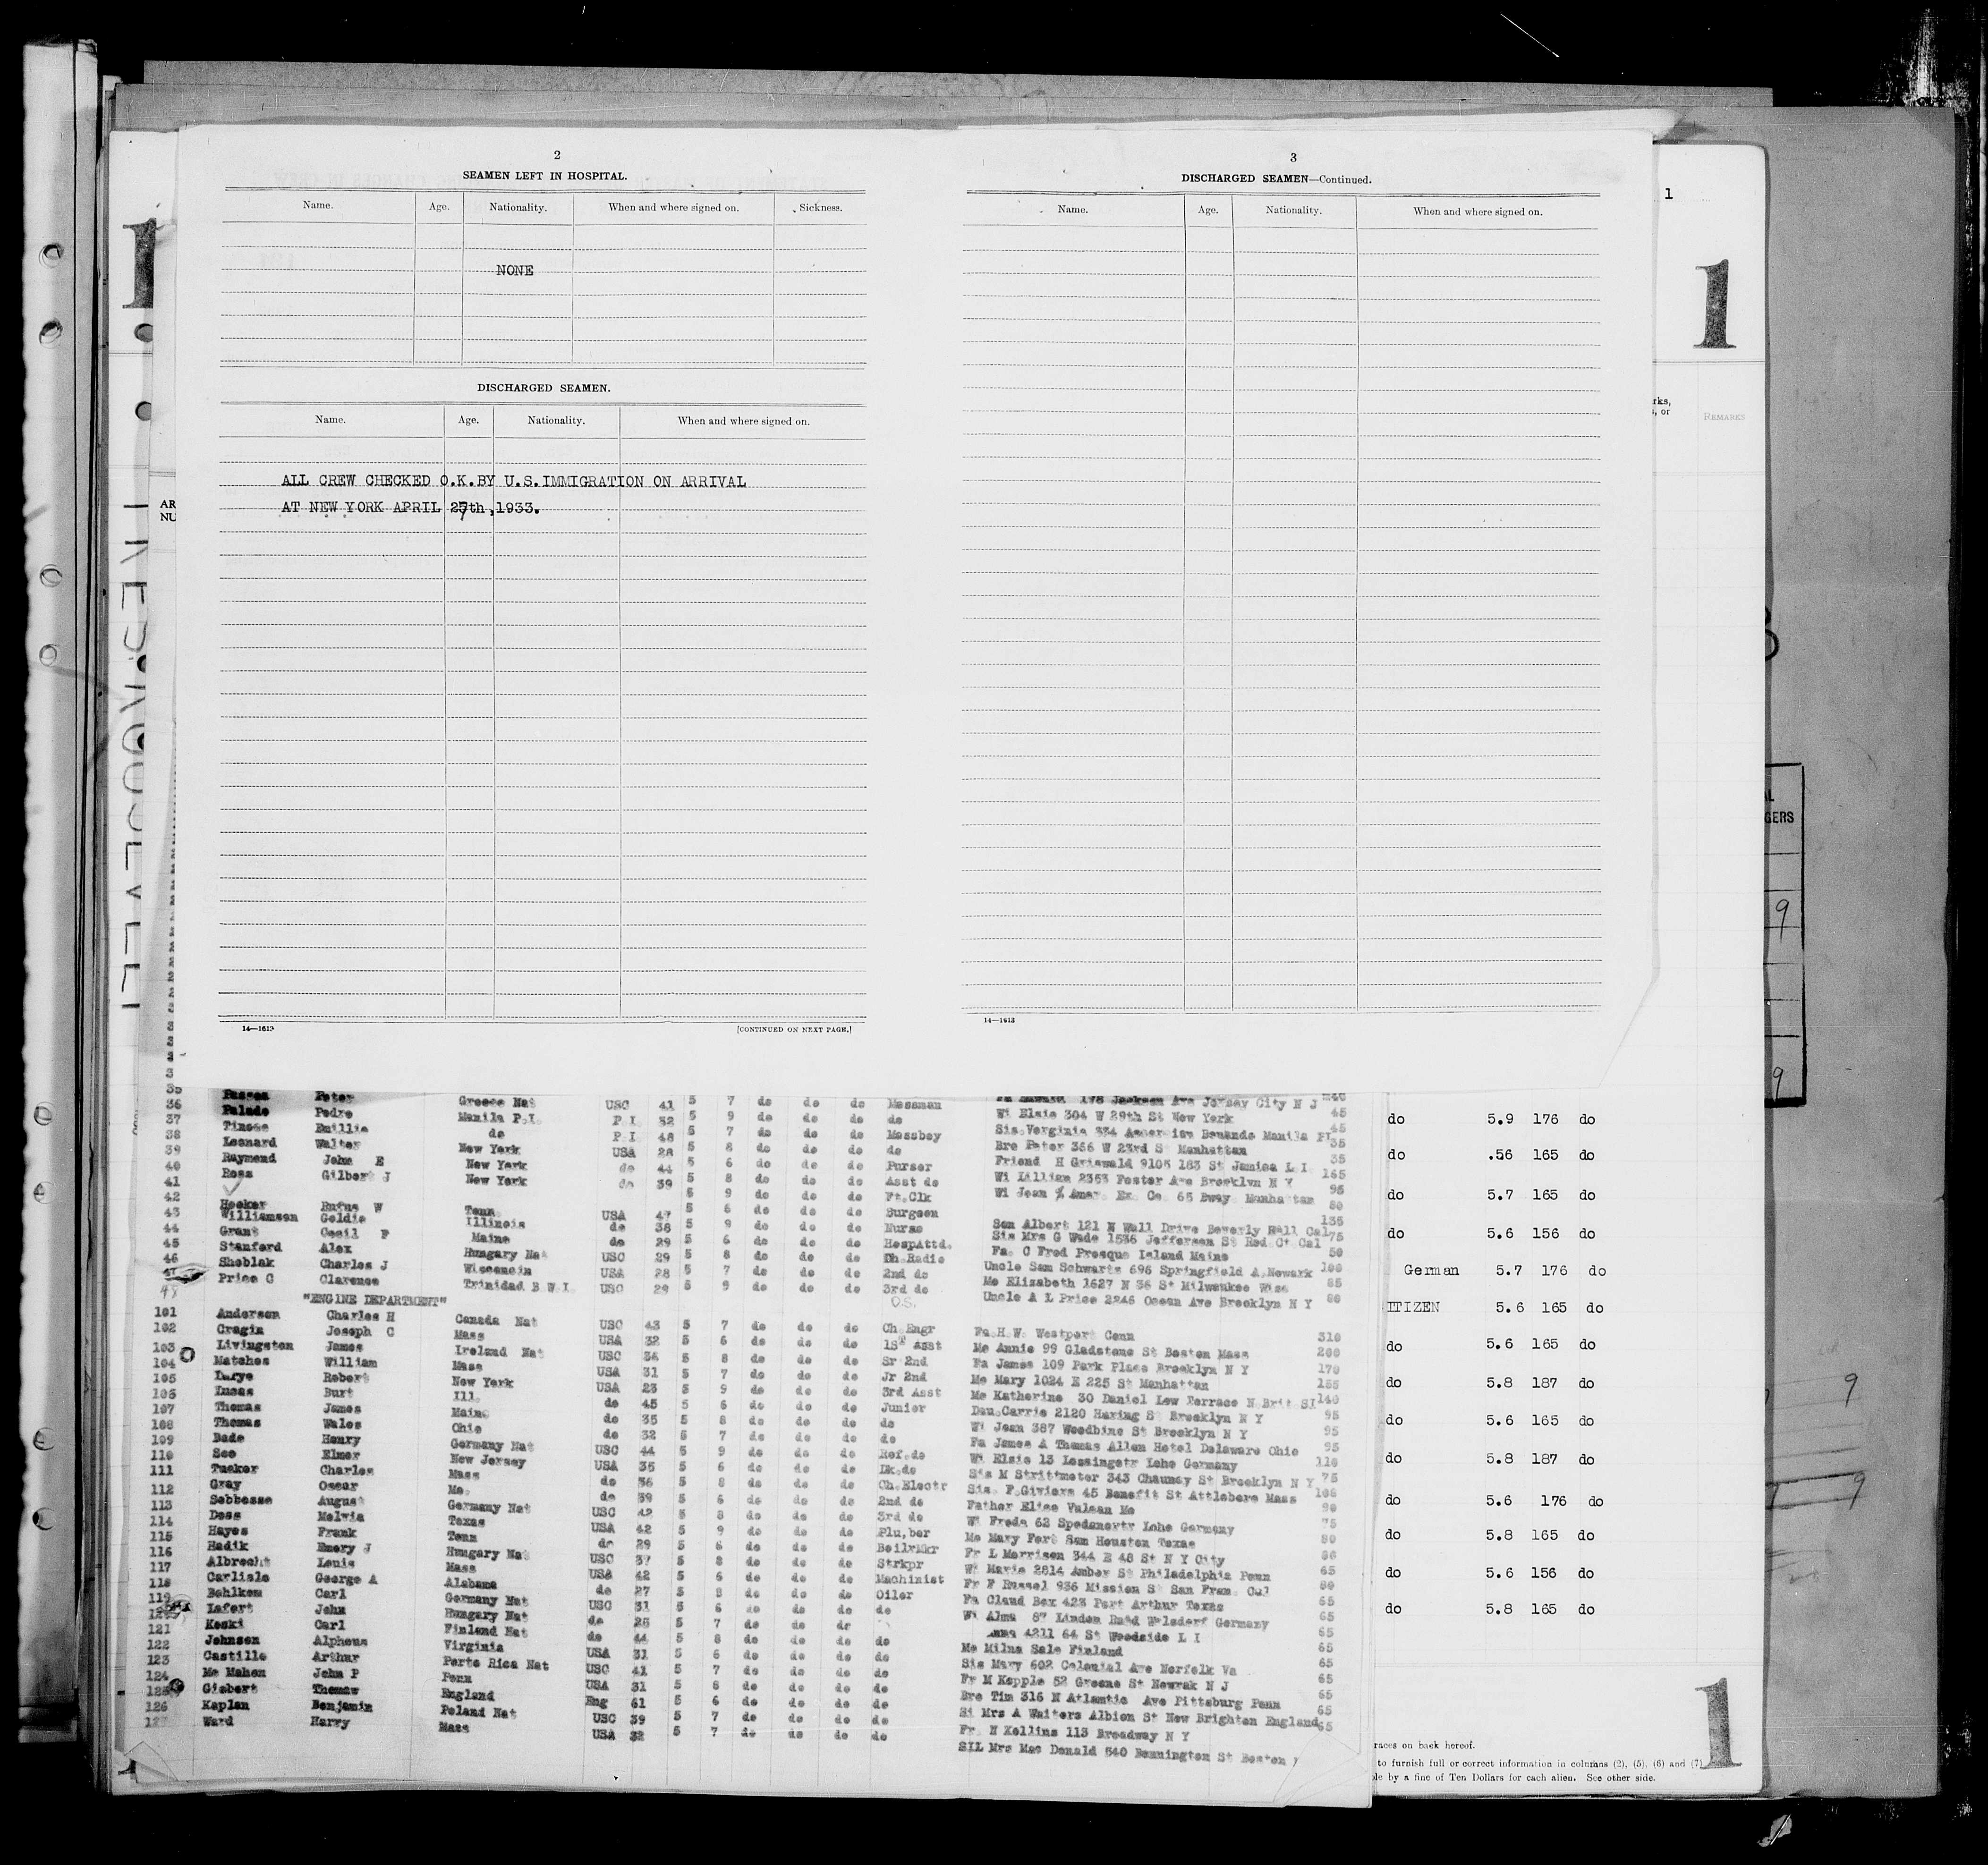 2
SEAMEN LEFT IN HOSPITAL.
Name. Age. Nationality. When and where signed on. Sickness.
NONE
DISCHARGED SEAMEN.
Name. Age. Nationality. When and where signed on.
ALL CREW CHECKED O.K.BY U.S.IMMIGRATION ON ARRIVAL
AT NEW YORK APRIL 27th,1933.
14—1613 [CONTINUED ON NEXT PAGE.]
3
DISCHARGED SEAMEN—Continued.
Name. Age. Nationality. When and where signed on.
14—1613
1
1
rks,
, or
REMARKS
AR
NU
GERS
9
9
35 Peter Greece Nat USC 41 5 7 do do do Messman 178 Jackson Ave Jersey City N J
36 Palado Pedro Manila P.I. P I 32 5 9 do do do do Wi Elsie 304 W 29th St New York 45
37 Emillio do P I 48 5 7 do do do Messboy Sis Verginia 334 Manila PI 45
38 Leonard Walter New York USA 28 5 8 do do do do Bro Peter 366 W 23rd St Manhattan 35
39 Raymond John E New York do 44 5 6 do do do Purser Friend H Griswald 9105 183 St Jamica L I 35
40 Ross Gilbert J New York do 39 5 8 do do do Asst do Wi Lillian 2353 Foster Ave Brooklyn N Y 165
41 5 9 do do do Ft.Clk Wi Jean % Amer Ex Co 65 Bway Manhattan 95
42 Hooker Rufus W Tenn USA 47 5 6 do do do Surgeon 80
43 Williamson Goldie Illinois do 38 5 9 do do do Nurse Son Albert 121 N Wall Drive Beverly Hall Cal 135
44 Grant Cecil F Maine do 29 5 6 do do do HospAttd. Sis Mrs G Wade 1536 Jefferson St Red Ct Cal 75
45 Stanford Alex Hungary Nat USC 29 5 8 do do do Ch.Radio Fa. C Fred Presque Island Maine 50
46 Sheblak Charles J Wisconsin USA 28 5 7 do do do 2nd do Uncle Sam Schwartz 696 Springfield A.Newark 100
47 Price C Clarence Trinidad B W I USC 29 5 9 do do do 3rd do Mo Elizabeth 1627 N 36 St Milwaukee Wisc 85
48 O.S. Uncle A L Price 2246 Ocean Ave Brooklyn N Y 80
"ENGINE DEPARTMENT"
101 Anderson Charles H Canada Nat USC 43 5 7 do do do Ch.Engr Fa.H.W. Westport Conn 310
102 Cragin Joseph C Mass USA 32 5 6 do do do 1ST Asst Mo Annie 99 Gladstone St Boston Mass 200
103 Livingston James Ireland Nat USC 36 5 8 do do do Sr 2nd Fa James 109 Park Place Brooklyn N Y 170
104 Matches William Mass USA 31 5 7 do do do Jr 2nd Mo Mary 1024 E 225 St Manhattan 155
105 Robert New York USA 23 5 9 do do do 3rd Asst Mo Katherine 30 Daniel Low Terrace N Brit SI 140
106 Lucas Burt Ill. do 45 5 6 do do do Junior Dau.Carrie 2120 Haring St Brooklyn N Y 95
107 Thomas James Maine do 35 5 8 do do do do Wi Jean 387 Woodbine St Brooklyn N Y 95
108 Thomas Wales Ohio do 32 5 7 do do do do Fa James A Thomas Allen Hotel Delaware Ohio 95
109 Bode Henry Germany Nat USC 44 5 9 do do do Ref.do Wi Elsie 13 Lessingstr Lohe Germany 110
110 Soo Elmer New Jersey USA 35 5 6 do do do Dk.do Sis M Strittmeter 343 Chauncy St Brooklyn N Y 75
111 Tucker Charles Mass do 36 5 8 do do do Ch.Electr Sis. F.Giviera 45 Benefit St Attlebore Mass 100
112 Gray Oscar Me. do 39 5 6 do do do 2nd do Father Elias Valean Me 90
113 Sebbesse August Germany Nat USC 42 5 8 do do do 3rd do Wi Freda 62 Lohe Germany 75
114 Doss Melvin Texas USA 42 5 9 do do do Plu,ber Mo Mary Fort Sam Houston Texas 80
115 Hayes Frank Tenn do 29 5 6 do do do BoilrMkr Fr L Morrison 344 E 48 St N Y City 80
116 Hadik Emery J Hungary Nat USC 37 5 8 do do do Strkpr Wi Marie 2814 Amber St Philadelphia Penn 65
117 Albrecht Louis Mass USA 42 5 6 do do do Machinist Fr F Russel 936 Mission St San Fran. Cal 80
118 Carlisle George A Alabama do 27 5 8 do do do Oiler Fa Claud Box 423 Port Arthur Texas 65
119 Bohlken Carl Germany Nat USC 31 5 6 do do do do Wi Alma 87 Linden Germany 65
Lafert John Hungary Nat do 25 5 7 do do do 4211 64 St Woodside L I 65
121 Koski Carl Finland Nat do 44 5 8 do do do do Mo Milna Salo Finland 65
122 Johnson Alpheus Virginia USA 31 5 6 do do do do Sis Mary 602 Colonial Ave Norfolk Va 65
123 Castillo Arthur Porto Rica Nat USC 41 5 7 do do do do Fr M Kopple 52 Greene St Newrak N J 65
124 Mc Mahon John P Penn USA 31 5 8 do do do do Bro Tim 316 N Atlantic Ave Pittsburg Penn 65
125 Giebert Thomas England Eng 61 5 6 do do do do Si Mrs A Waiters Albion St New Brighton England 65
126 Kaplan Benjamin Poland Nat USC 39 5 7 do do do do Fr. N Kollins 113 Broadway N Y
127 Ward Harry Mass USA 32 5 7 do do do do SIL Mrs Mac Donald 540 Bennington St Boston
do 5.9 176 do
do .56 165 do
do 5.7 165 do
do 5.6 156 do
German 5.7 176 do
ITIZEN 5.6 165 do
do 5.6 165 do
do 5.8 187 do
do 5.6 165 do
do 5.8 187 do
do 5.6 176 do
do 5.8 165 do
do 5.6 156 do
do 5.8 165 do
9
9
races on back hereof.
to furnish full or correct information in columns (2), (5), (6) and (7)
le by a fine of Ten Dollars for each alien. See other side.
1